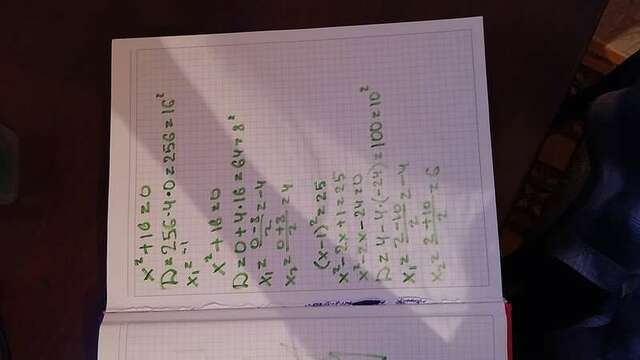 x²+16=0
D=256-4·0=256=16²
x₁=-1
x²+16=0
D=0+4·16=64=8²
x₁=(0-8)/2=-4
x₂=(0+8)/2=4
(x-1)²=25
x²-2x+1=25
x²-2x-24=0
D=4-4·(-24)=100=10²
x₁=(2-10)/2=-4
x₂=(2+10)/2=6